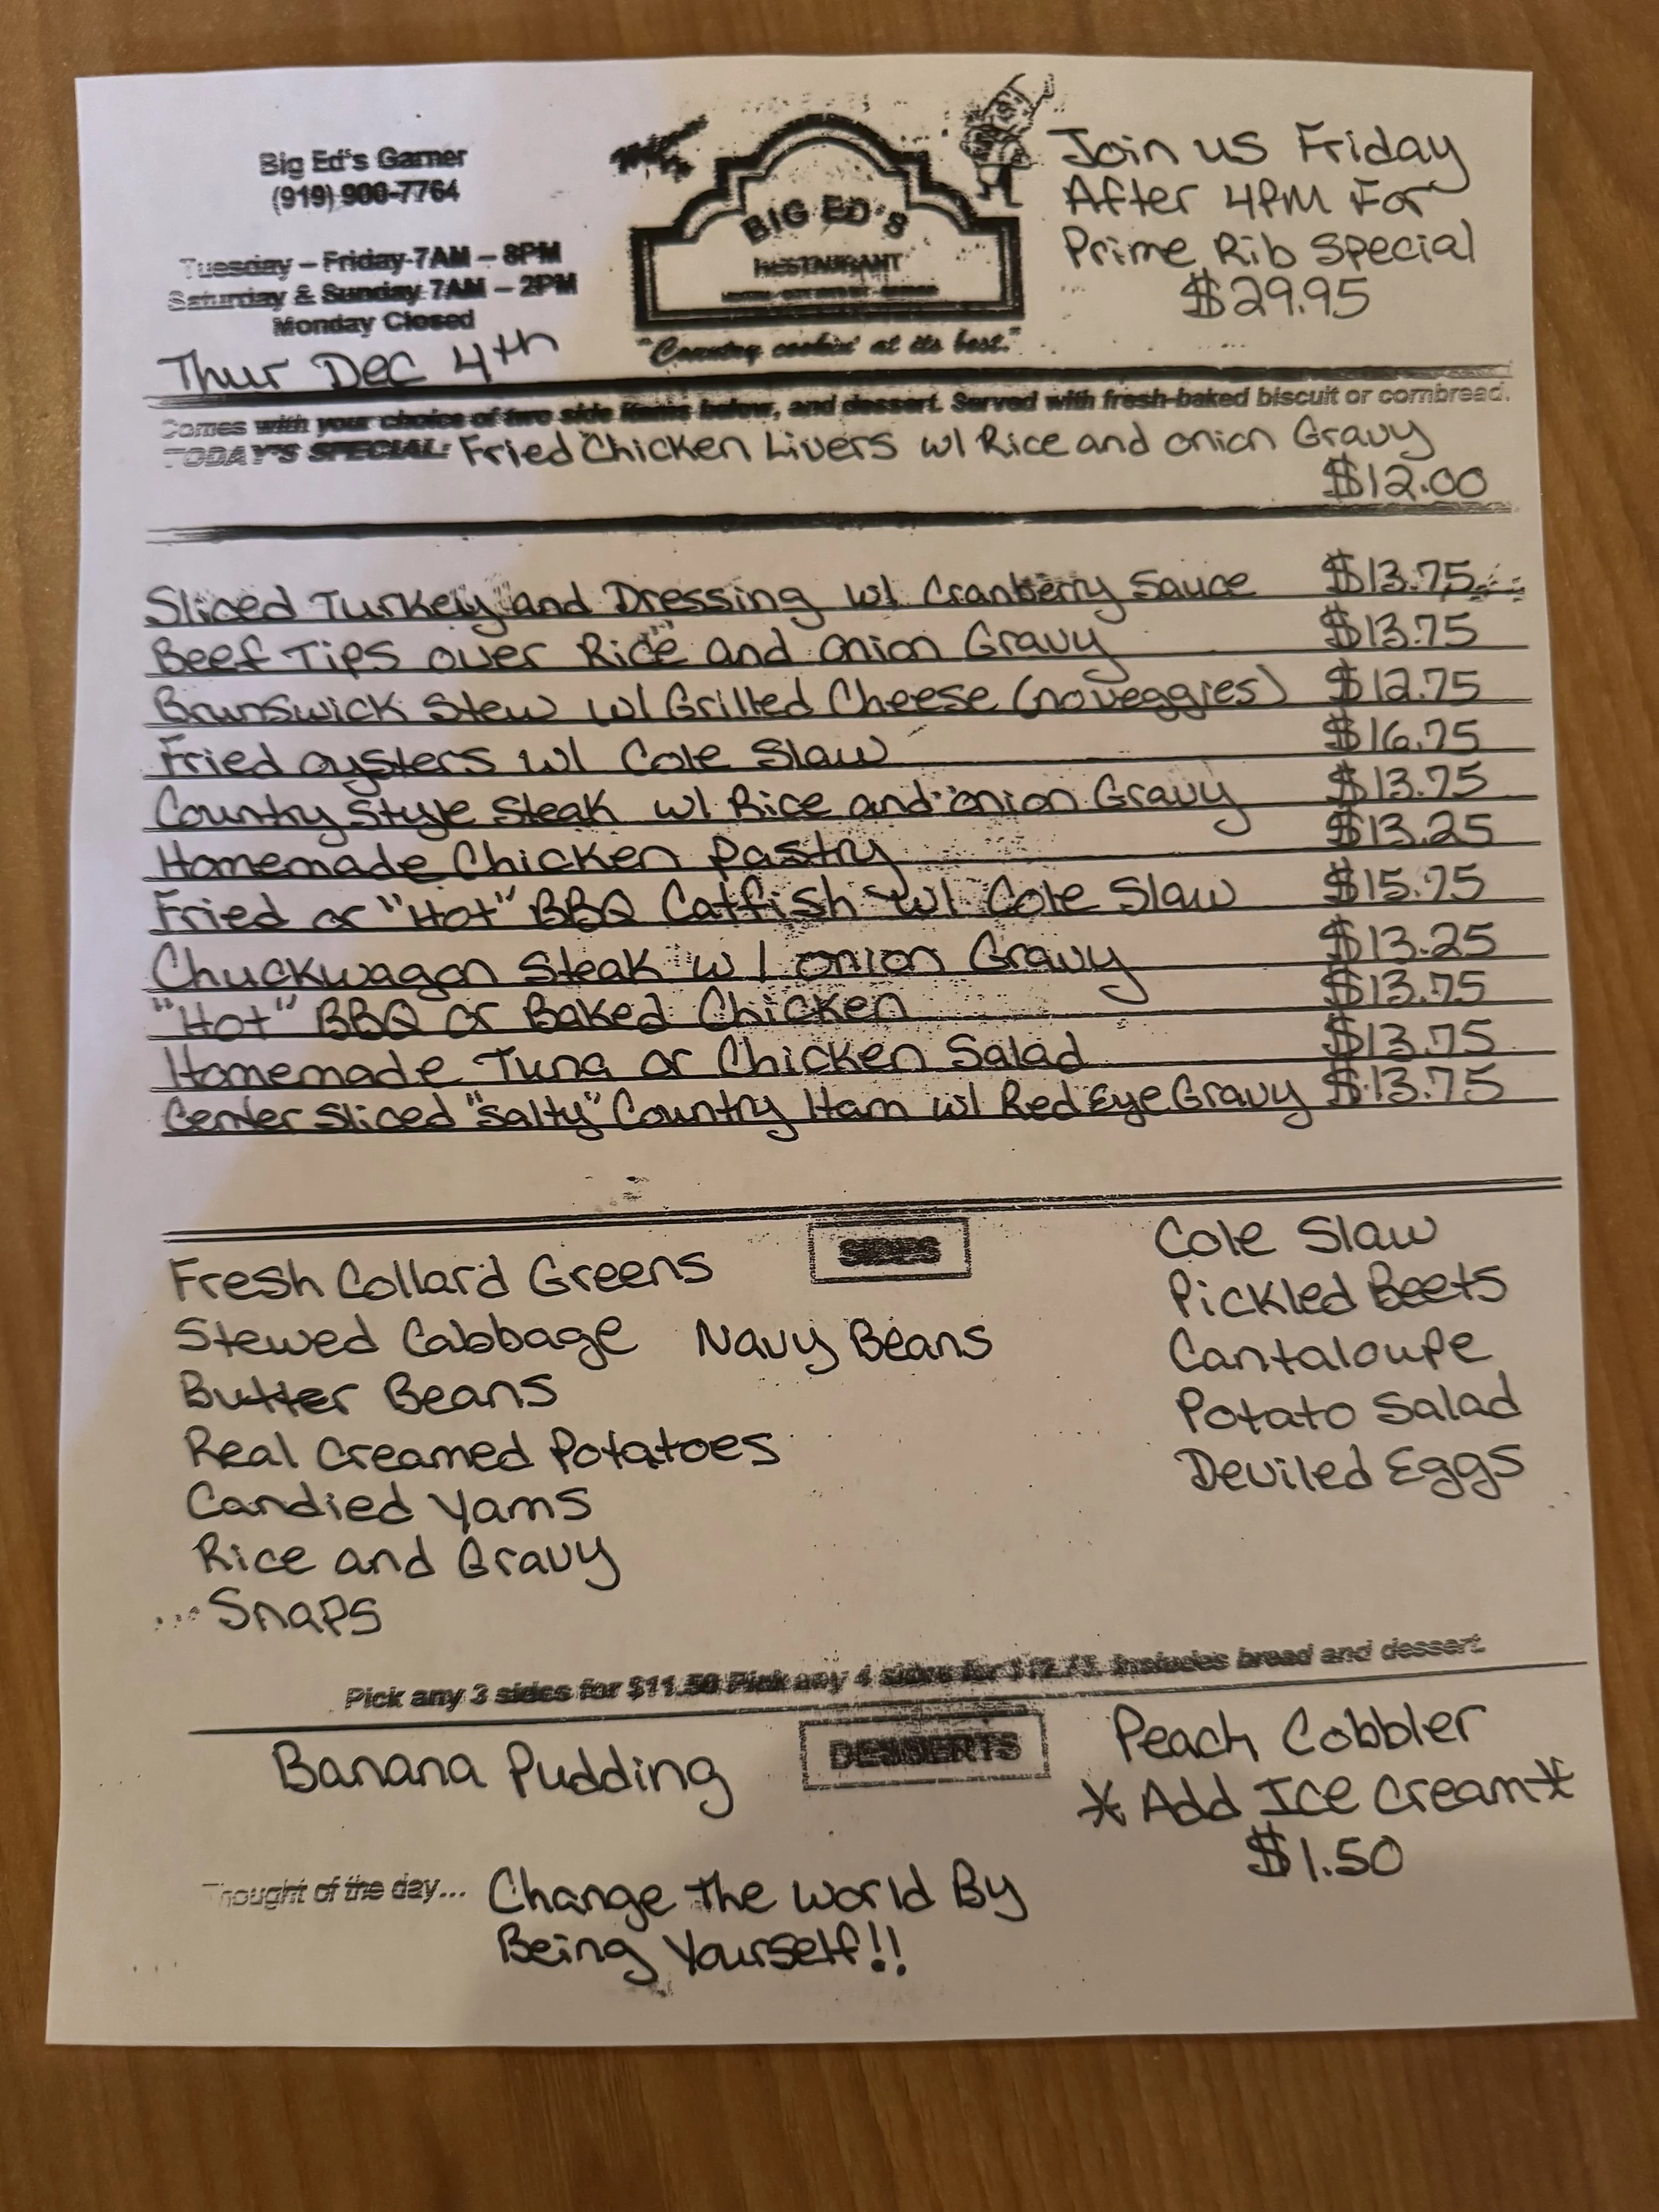 Big Ed's Garner
(919) 900-7764
Tuesday – Friday 7AM – 8PM
Saturday & Sunday 7AM – 2PM
Monday Closed
Thur Dec 4th
BIG ED'S
RESTAURANT
"Country cookin' at its best."
Join us Friday
After 4PM For
Prime Rib Special
$29.95
Comes with your choice of two side items below, and dessert. Served with fresh-baked biscuit or cornbread.
TODAY'S SPECIAL: Fried Chicken Livers w/ Rice and onion Gravy
$12.00
Sliced Turkey and Dressing w/ Cranberry Sauce $13.75
Beef Tips over Rice and onion Gravy $13.75
Brunswick Stew w/ Grilled Cheese (no veggies) $12.75
Fried oysters w/ Cole Slaw $16.75
Country Style Steak w/ Rice and onion Gravy $13.75
Homemade Chicken Pastry $13.25
Fried or "Hot" BBQ Catfish w/ Cole Slaw $15.75
Chuckwagon Steak w/ onion Gravy $13.25
"Hot" BBQ or Baked Chicken $13.75
Homemade Tuna or Chicken Salad $13.75
Center Sliced "Salty" Country Ham w/ Red Eye Gravy $13.75
SIDES
Fresh Collard Greens
Stewed Cabbage Navy Beans
Butter Beans
Real Creamed Potatoes
Candied Yams
Rice and Gravy
Snaps
Cole Slaw
Pickled Beets
Cantaloupe
Potato Salad
Deviled Eggs
Pick any 3 sides for $11.50 Pick any 4 sides for $12.75. Includes bread and dessert.
DESSERTS
Banana Pudding
Peach Cobbler
*Add Ice Cream*
$1.50
Thought of the day... Change The World By
Being Yourself!!